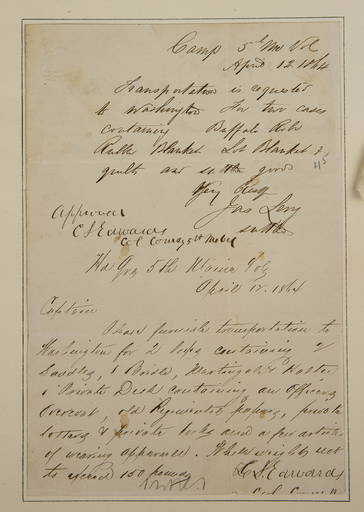 Camp 5th Me Vol
April 12 1864
Transportation is requested
to Washington For two cases
containing Buffalo Robe
Blanket Blankets &
quilts and sutler goods
Very Resp
Jas
sutler
Approved
C S Edwards
Col Comdg 5th Me
Hd Qrs 5th Maine Vols
April 12, 1864
Captain
Please furnish transportation to
Washington for 2 boxes containing 2
Saddles, 1 Bridle, Martingale & Halter
1 Private Desk containing an Officers
Overcoat, old Regimental papers, private
letters & private books and a few articles
of wearing apparel. Whole weight not
to exceed 150 pounds
C S Edwards